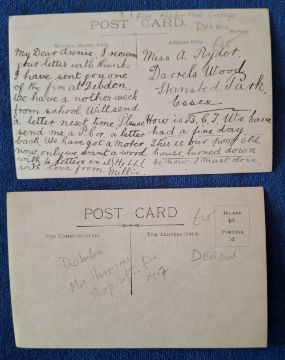 POST CARD
Written Matter Only
Address Only.
Debden
My Dear Annie I received
your letter with thanks.
I have sent you one
of the fire at Debden.
We have a nother week
from school. will send
a letter next time. Please
send me a P.C or a letter
back We have got a Motor
now only we want a word
with 4 letters in it
with love from Millie
Miss A Ryder.
Darrels Wood
Stansted Park.
Essex
How is B. C. T. We have
had a fine day
This is our poor old
house turned down
so now I must close
POST CARD
For Communication.
For Address Only.
INLAND
½d
FOREIGN
1d
Debden
Mr
fire
DEBDEN